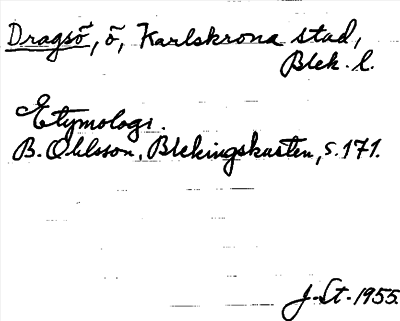 Dragsö, ö, Karlskrona stad,
Blek. l.
Etymologi.
B. Ohlsson, Blekingskusten, s. 171.
J. St. 1955.